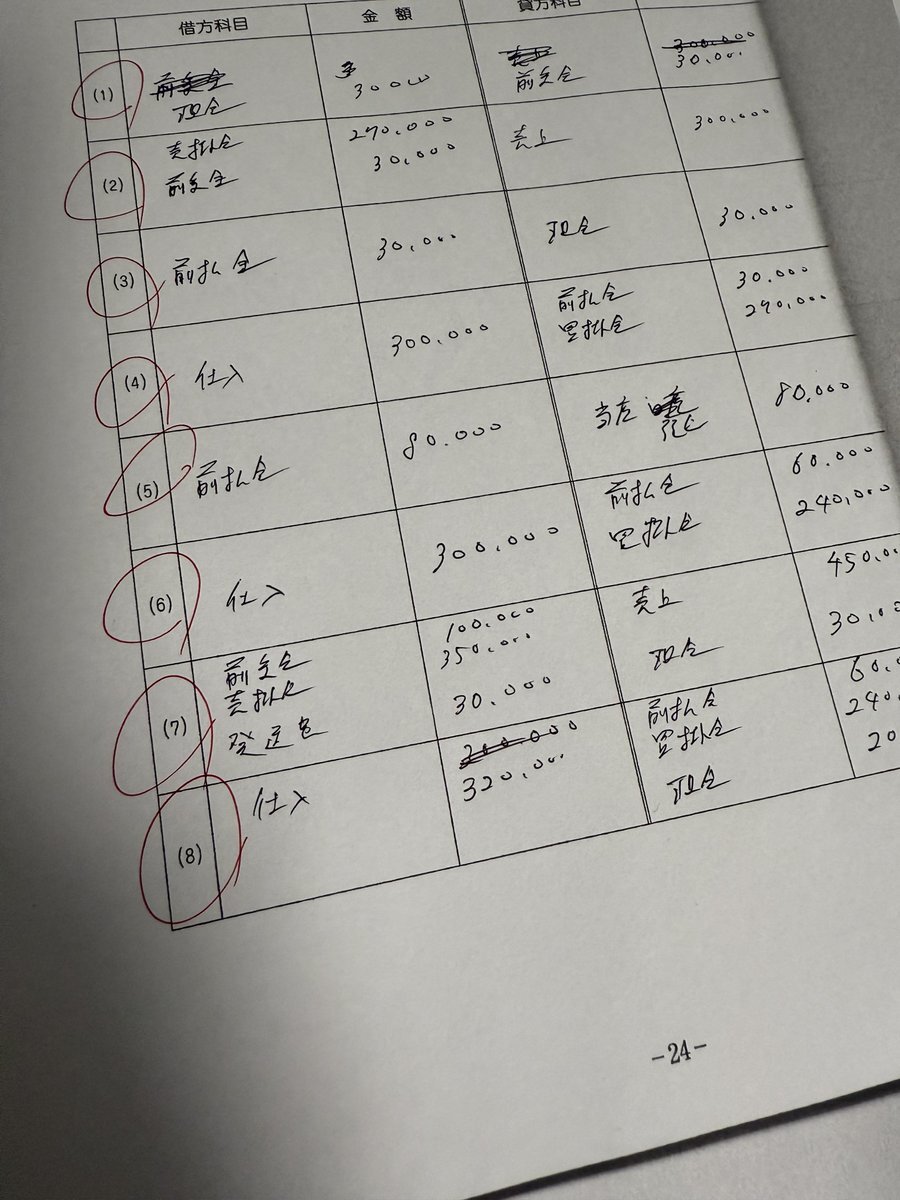 借方科目 金額 貸方科目
(1) 現金 30000 前受金 30.000
(2) 売掛金 270.000 売上 300.000
前受金 30.000
(3) 前払金 30.000 現金 30.000
(4) 仕入 300.000 前払金 30.000
買掛金 270.000
(5) 前払金 80.000 当座 80.000
(6) 仕入 300.000 前払金 60.000
買掛金 240.000
(7) 前受金 100.000 売上 450.00
売掛金 350.000
発送費 30.000 現金 30.00
(8) 仕入 320.000 前払金 60.
買掛金 240
現金 20
-24-